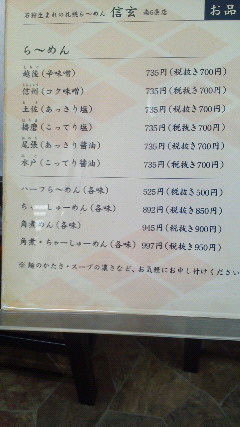 石狩生まれの札幌ら～めん 信玄 南6条店
お品
ら～めん
えちご
越後(辛味噌) 735円(税抜き700円)
しんしゅう
信州(コク味噌) 735円(税抜き700円)
とさ
土佐(あっさり塩) 735円(税抜き700円)
はりま
播磨(こってり塩) 735円(税抜き700円)
おわり
尾張(あっさり醤油) 735円(税抜き700円)
みと
水戸(こってり醤油) 735円(税抜き700円)
ハーフら～めん(各味) 525円(税抜き500円)
ちゃーしゅーめん(各味) 892円(税抜き850円)
角煮めん(各味) 945円(税抜き900円)
角煮・ちゃーしゅーめん(各味) 997円(税抜き950円)
※麺のかたさ・スープの濃さなど、お気軽にお申し付けください